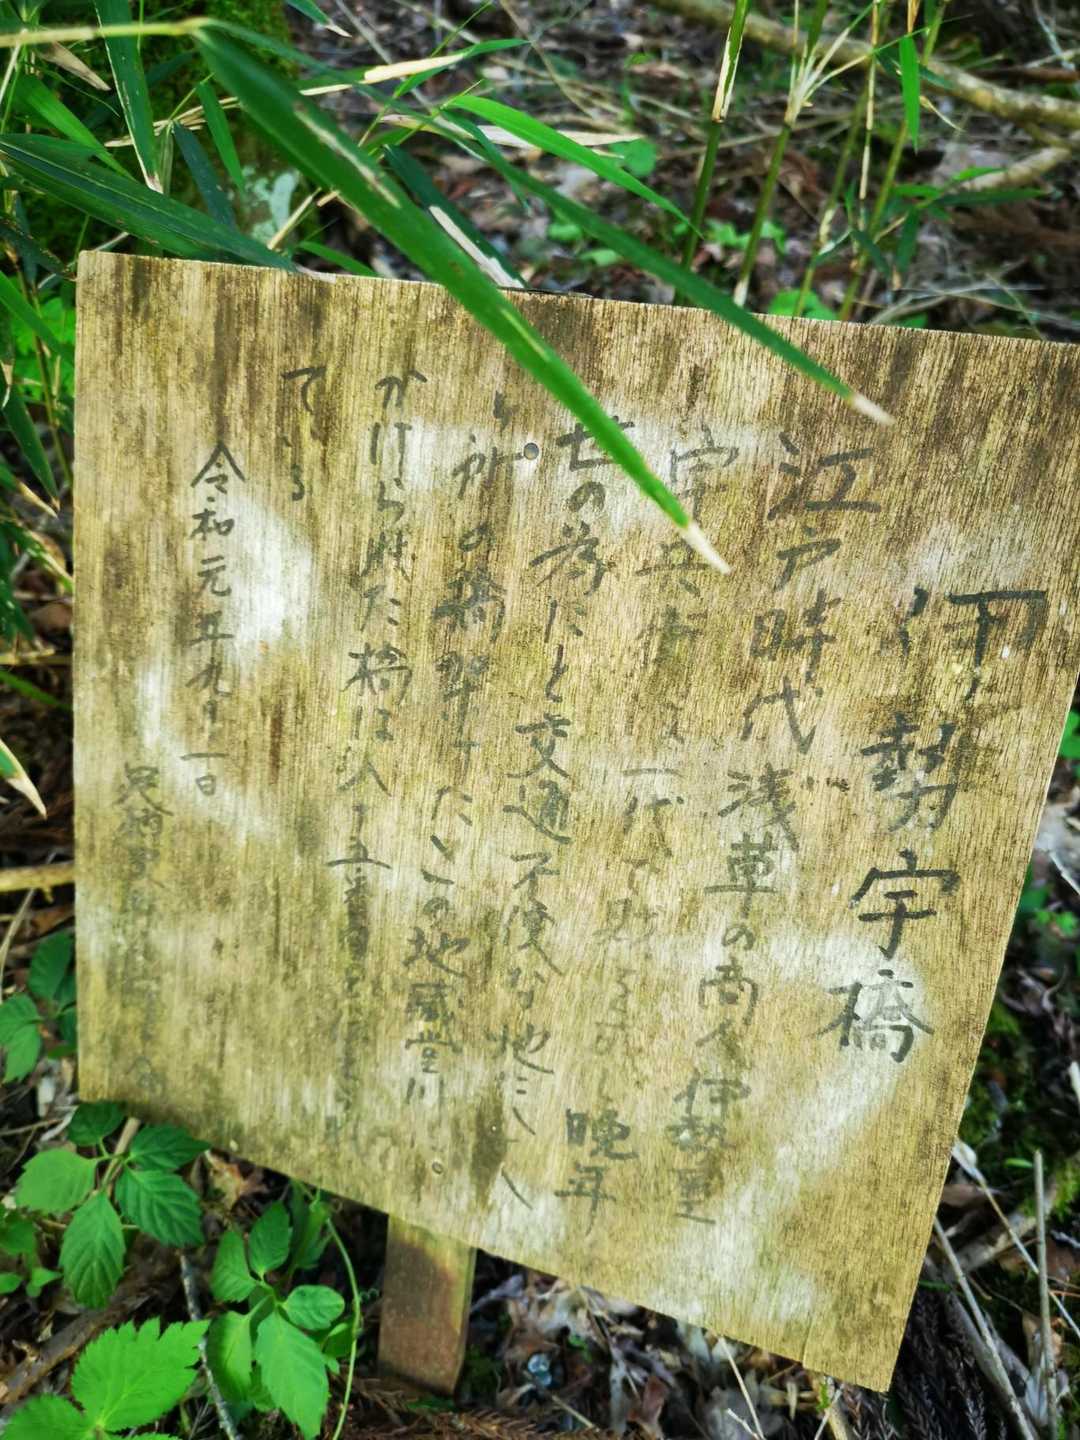 伊勢宇橋
江戸時代浅草の商人伊勢屋
宇兵衛は一代で財をなし晩年
世の為にと交通不便な地に
ヶ所の橋架けたこの地蔵堂川
かけられた橋は八十五番目と
ている
令和元年九月一日